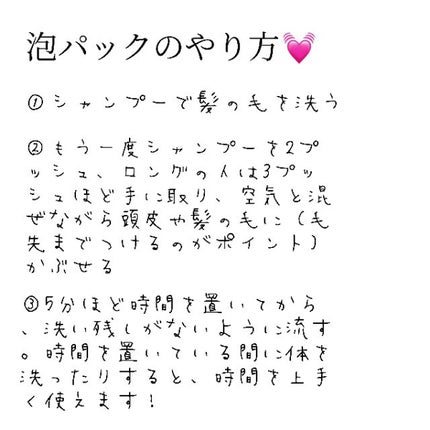 泡パックのやり方💓
①シャンプーで髪の毛を洗う
②もう一度シャンプーを2プ
ッシュ、ロングの人は3プッ
シュほど手に取り、空気と混
ぜながら頭皮や髪の毛に(毛
先までつけるのがポイント)
かぶせる
③5分ほど時間を置いてから
、洗い残しがないように流す
。時間を置いている間に体を
洗ったりすると、時間を上手
く使えます!